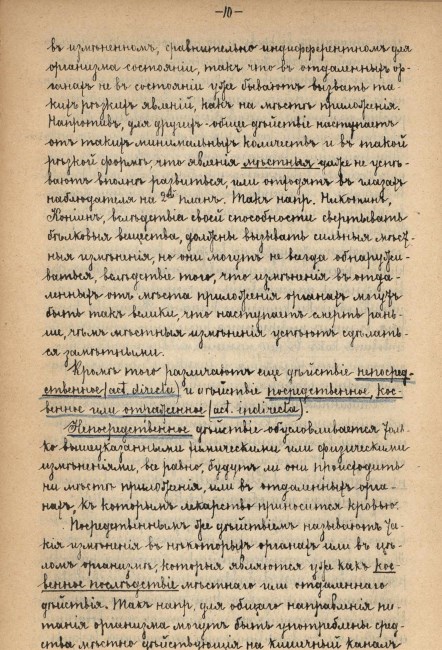 -10-
въ измѣненномъ, сравнительно индифферентномъ для
организма состояніи, такъ что въ отдаленныхъ ор-
ганахъ не въ состояніи уже бываютъ вызвать та-
кихъ рѣзкихъ явленій, какъ на мѣстѣ приложенія.
Напротивъ, для другихъ общее дѣйствіе наступаетъ
отъ такихъ минимальныхъ количествъ и въ такой
рѣзкой формѣ, что явленія мѣстныя даже не успѣ-
ваютъ вполнѣ развиться, или отходятъ въ глазахъ
наблюдателя на 2ой планъ. Такъ напр. Никотинъ,
Коніинъ, вслѣдствіе своей способности свертывать
бѣлковыя вещества, должны вызывать сильныя мѣст-
ныя измѣненія, но они могутъ не всегда обнаружи-
ваться, вслѣдствіе того, что измѣненія въ отда-
ленныхъ отъ мѣста приложенія органахъ могутъ
быть такъ велики, что наступаетъ смерть рань-
ше, чѣмъ мѣстныя измѣненія успѣютъ сдѣлать-
ся замѣтными.
Кромѣ того различаютъ еще дѣйствіе непосред-
ственное (act. directa) и дѣйствіе посредственное, кос-
венное или отраженное (act. indirecta).
Непосредственное дѣйствіе обусловливается толь-
ко вышеуказанными химическими или физическими
измѣненіями, все равно, будутъ ли они происходить
на мѣстѣ приложенія, или въ отдаленныхъ орга-
нахъ, къ которымъ лекарство приносится кровью.
Посредственнымъ же дѣйствіемъ называютъ та-
кія измѣненія въ нѣкоторыхъ органахъ или въ цѣ-
ломъ организмѣ, которыя являются уже какъ кос-
венное послѣдствіе мѣстнаго или отдаленнаго
дѣйствія. Такъ напр. для общаго направленія пи-
танія организма могутъ быть употреблены сред-
ства мѣстно дѣйствующія на кишечный каналъ